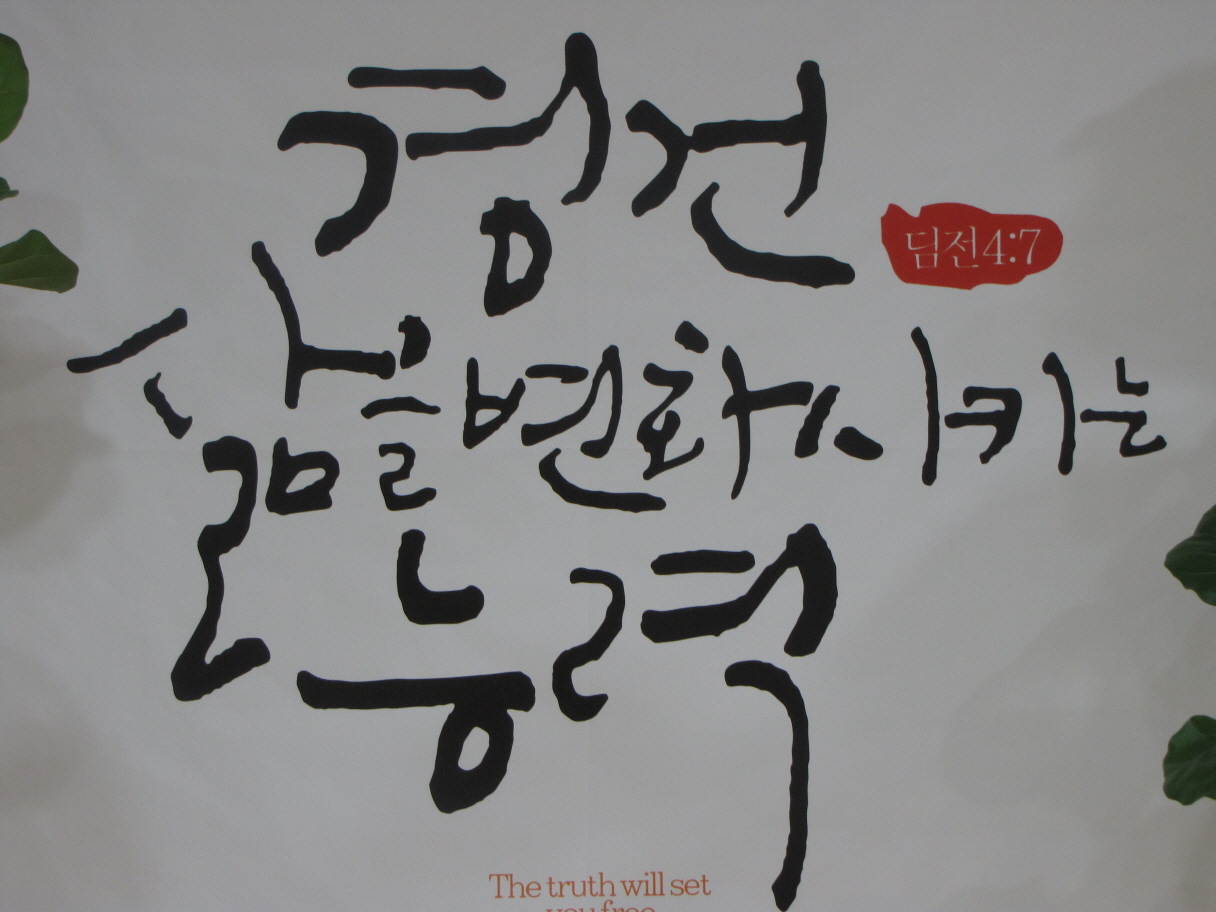 경건
딤전4:7
삶을 변화시키는
능력
The truth will set
you free